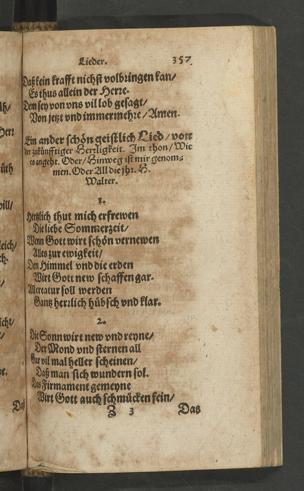 Lieder. 357
Daß kein krafft nichst volbringen kan/
Es thus allein der Herre.
Dem sey von vns vil lob gesagt/
Von jetzt vnd immermehre/ Amen.
Ein ander schön geistlich Lied/ von
der zukünfftiger Herrligkeit. Im thon/ Wie
es angeht. Oder/ Hinweg ist mir genom-
men. Oder All die jhr. H.
Walter.
1.
Hertzlich thut mich erfrewen
Die liebe Sommerzeit/
Wann Gott wirt schön vernewen
Alles zur ewigkeit/
Den Himmel vnd die erden
Wirt Gott new schaffen gar.
All creatur soll werden
Gantz herrlich hübsch vnd klar.
2.
Die Sonn wirt new vnd reyne/
Der Mond vnd sternen all
Gar vil mal heller scheinen/
Daß man sich wundern sol.
Das Firmament gemeyne
Wirt Gott auch schmücken fein/
Z 3 Das